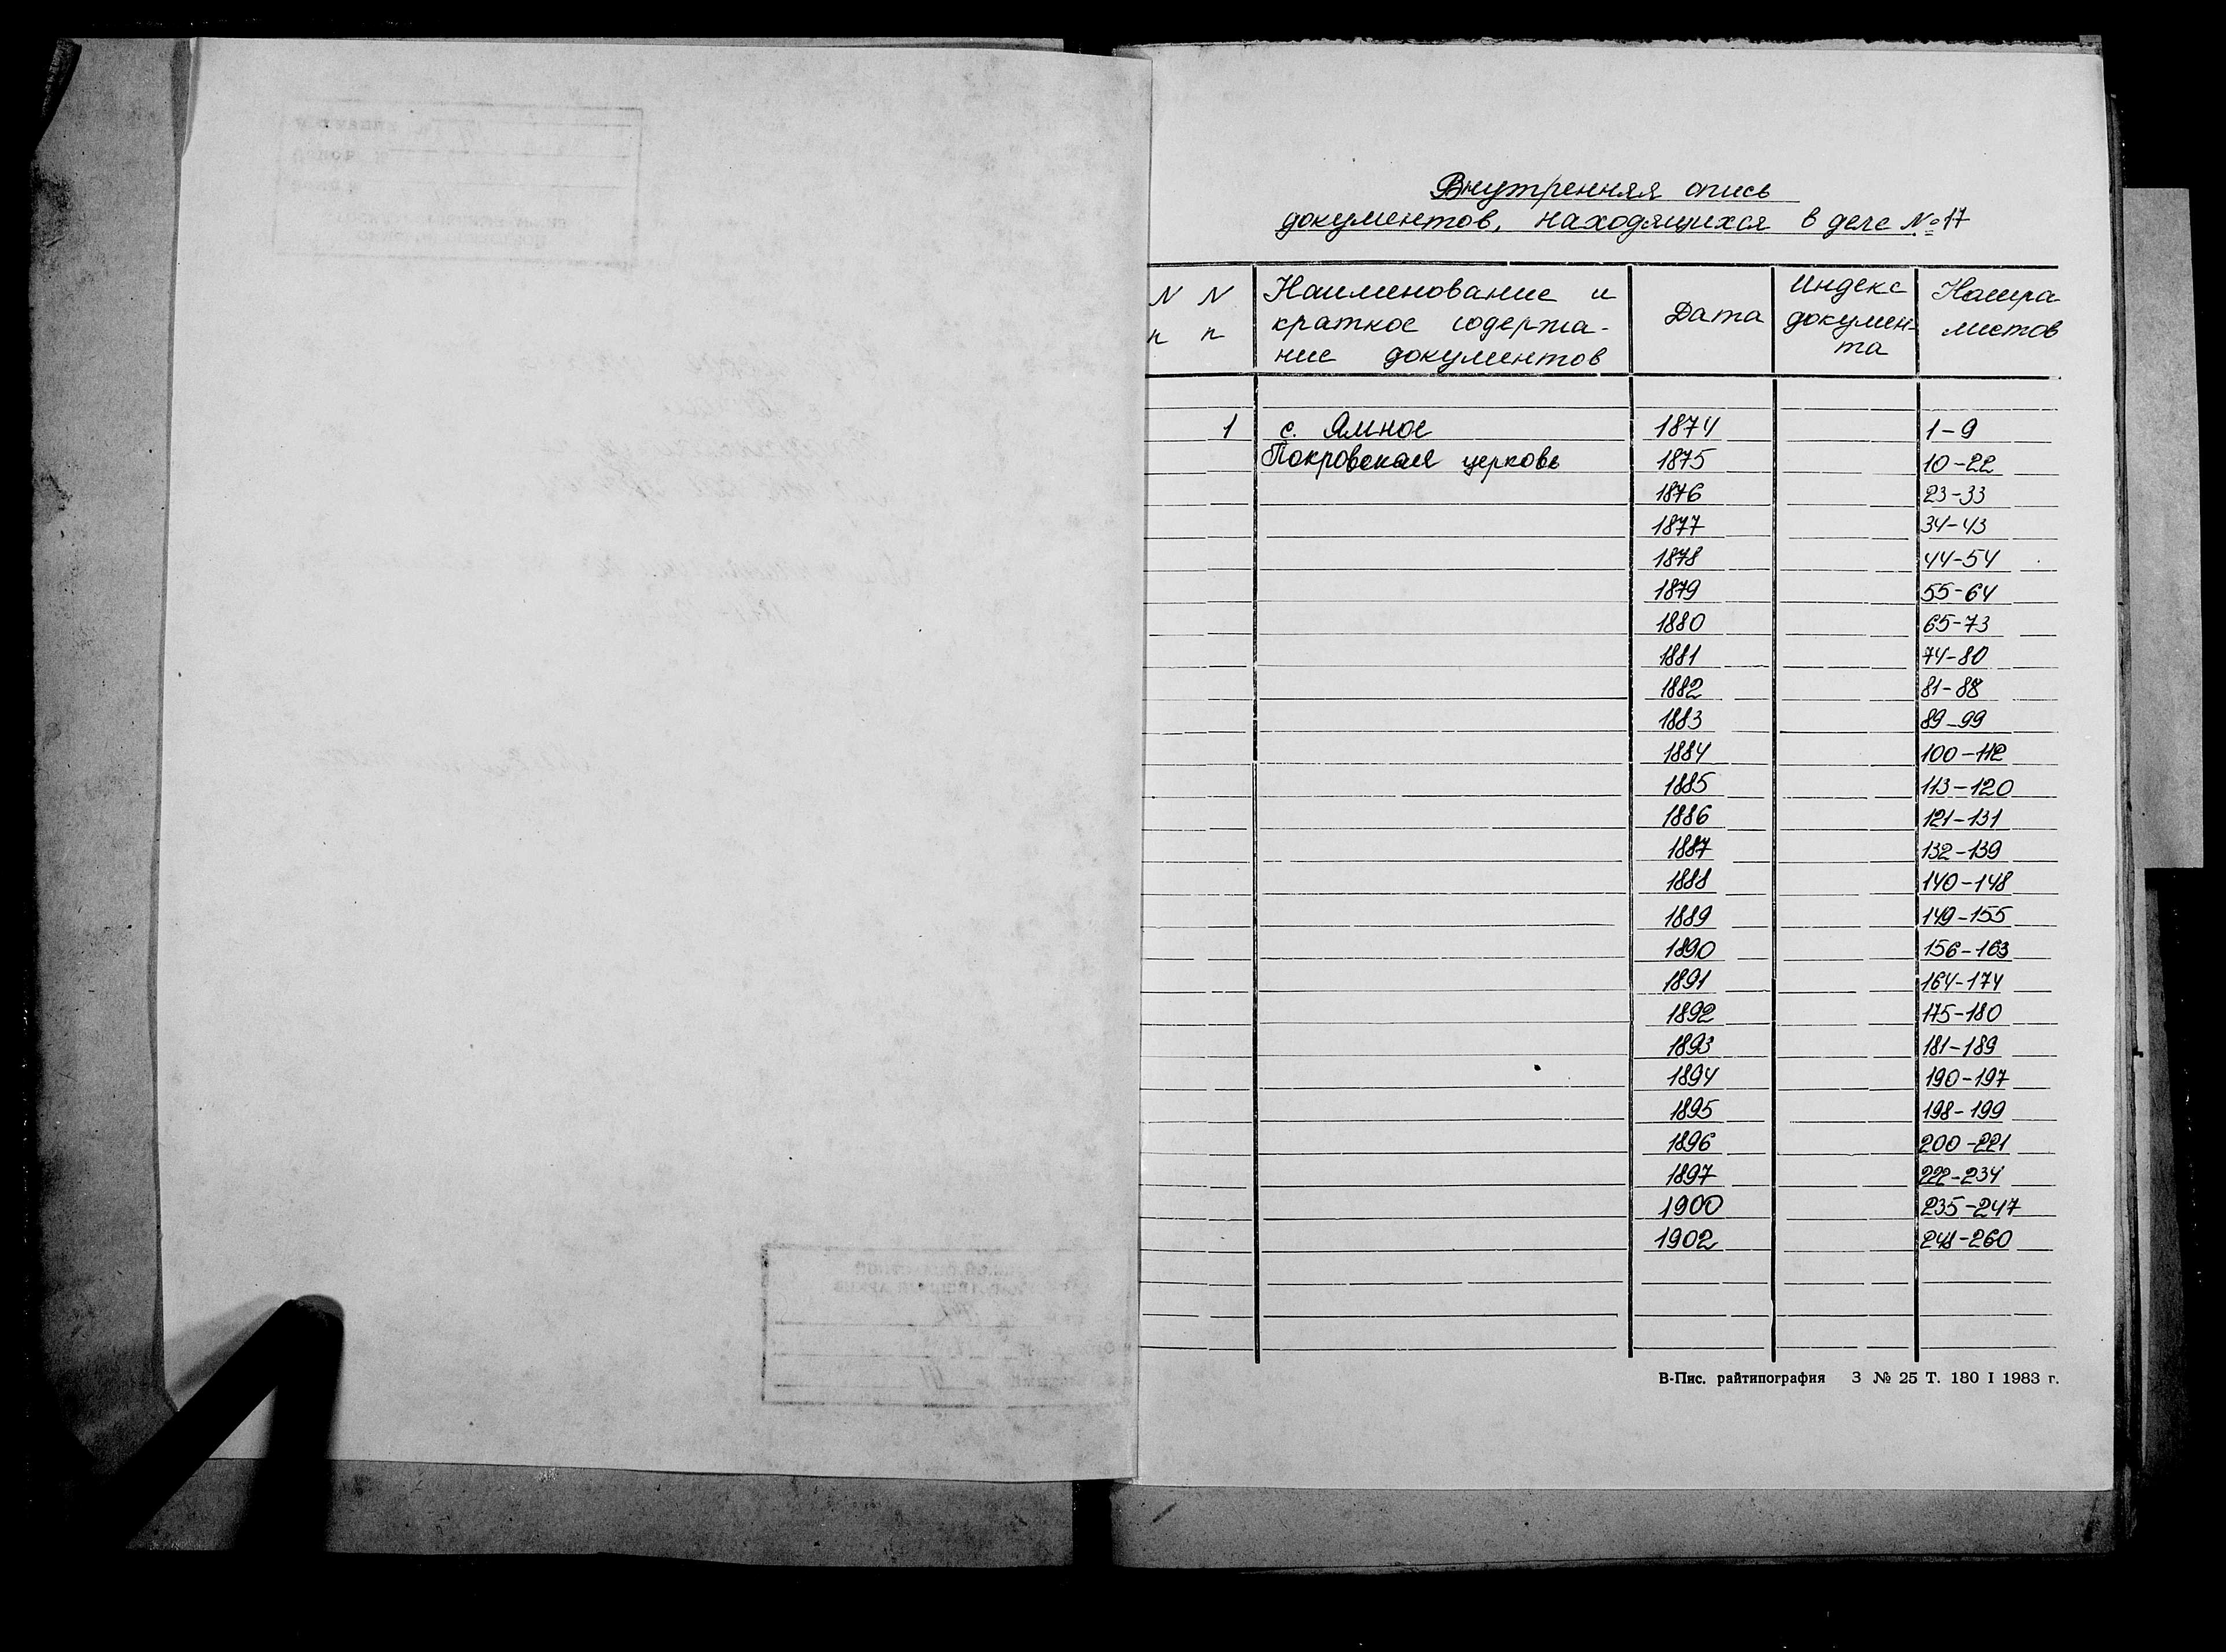 Внутренняя опись
документов, находящихся в деле № 17
N N
п п
Наименование и
краткое содержа-
ние документов
Дата
Индекс
докумен-
та
Номера
листов
1 с. Ямное 1874 1-9
Покровская церковь 1875 10-22
1876 23-33
1877 34-43
1878 44-54
1879 55-64
1880 65-73
1881 74-80
1882 81-88
1883 89-99
1884 100-112
1885 113-120
1886 121-131
1887 132-139
1888 140-148
1889 149-155
1890 156-163
1891 164-174
1892 175-180
1893 181-189
1894 190-197
1895 198-199
1896 200-221
1897 222-234
1900 235-247
1902 248-260
В-Пис. райтипография З № 25 Т. 180 I 1983 г.